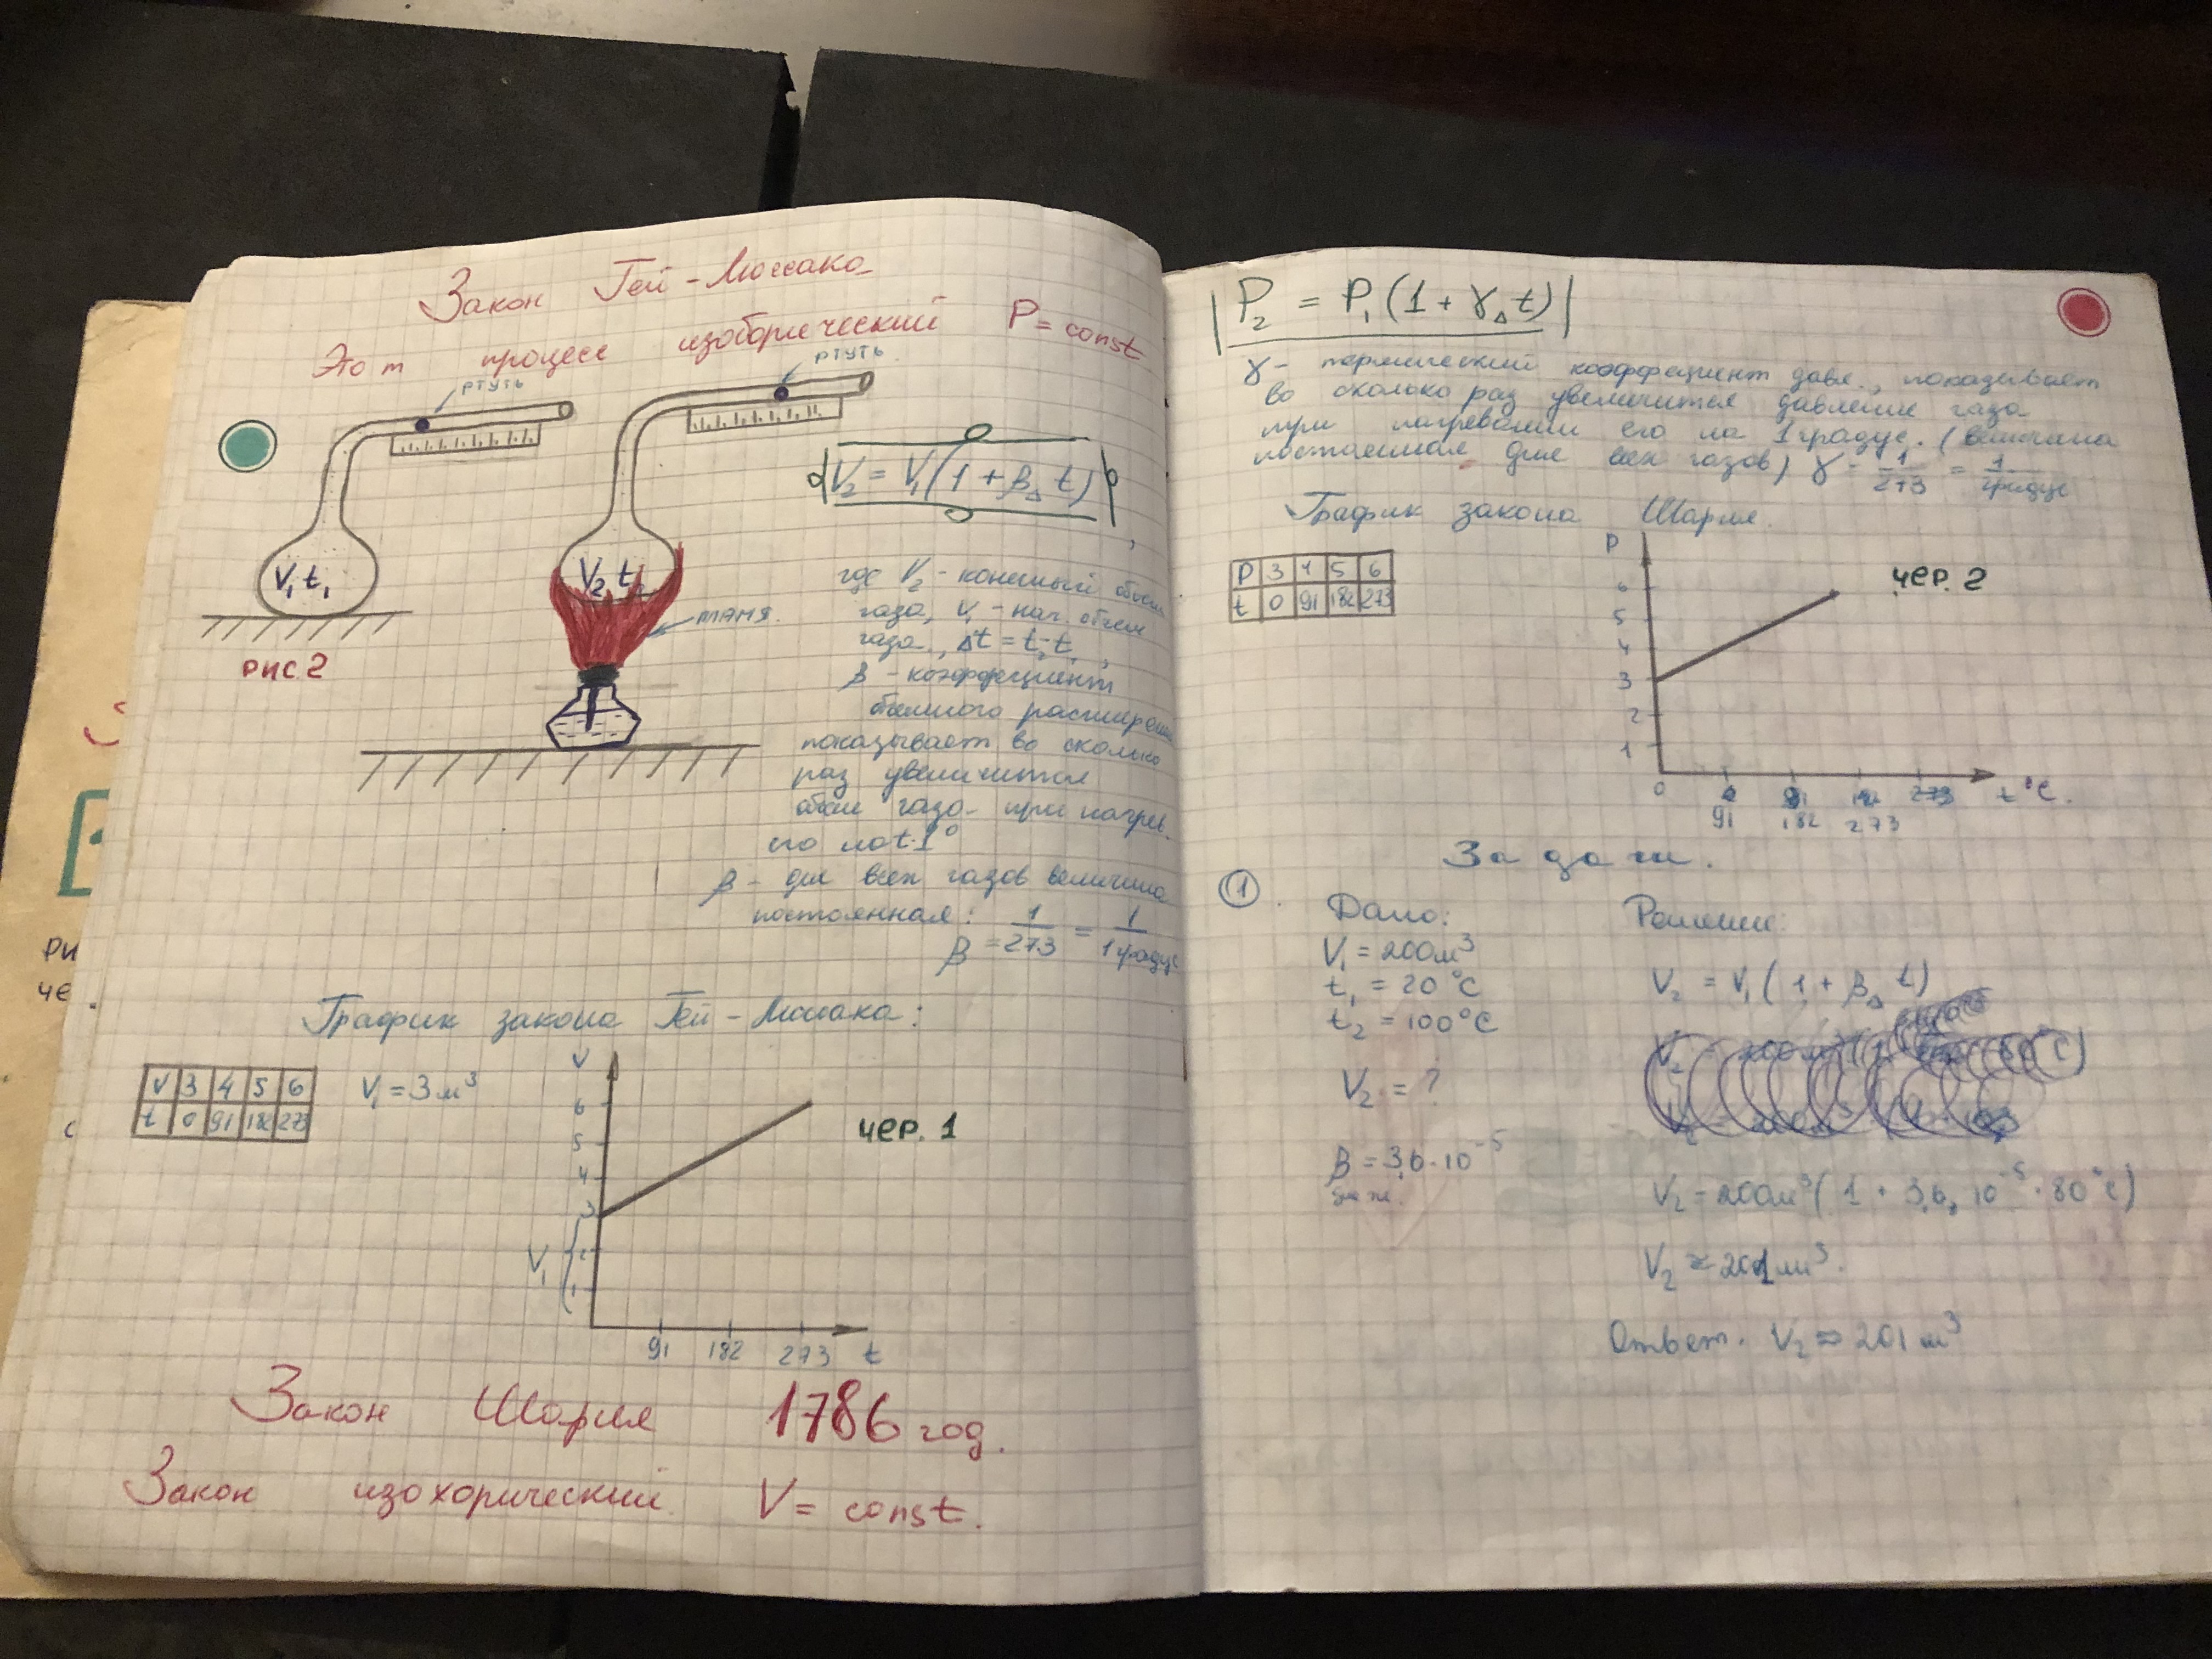 Закон Гей-Люссака
Этот процесс изобарический P = const
ртуть
ртуть
V₂ = V₁(1 + β△t),
V₁ t₁
V₂ t₂
пламя.
рис 2
где V₂ - конечный объем
газа, V₁ - нач. объем
газа, Δt = t₂-t₁,
β - коэффициент
объемного расширения
показывает во сколько
раз увеличится
объем газа при нагрев.
его на t 1°
β - для всех газов величина
постоянная:
β = 1/273 = 1/1градус
График закона Гей-Люссака:
V 3 4 5 6
t 0 91 182 273
V₁ = 3м³
V
6
5
4
3
2
1
V₁
91 182 273 t
чер. 1
Закон Шарля 1786 год.
Закон изохорический V = const.
ри
че
P₂ = P₁(1 + γ△t)
γ - термический коэффициент давл., показывает
во сколько раз увеличится давление газа
при нагревании его на 1градус. (величина
постоянная для всех газов) γ = 1/273 = 1/градус
График закона Шарля.
P 3 4 5 6
t 0 91 182 273
P
6
5
4
3
2
1
0
91 182 273 t°C.
чер. 2
Задачи.
1.
Дано:
V₁ = 200м³
t₁ = 20°C
t₂ = 100°C
V₂ = ?
β = 3,6·10⁻⁵
Решение:
V₂ = V₁(1 + β△t)
V₂ = 200м³(1 + 3,6·10⁻⁵·80°C)
V₂ ≈ 201м³.
Ответ. V₂ ≈ 201м³